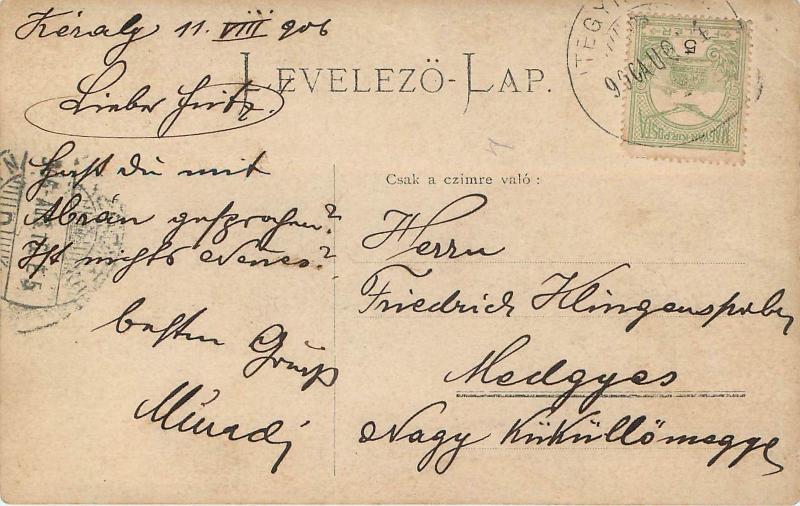 Kéraly 11. VIII 906
LEVELEZŐ-LAP.
Lieber Fritz.
Hast du mit
Ábrán gesprochen?
Ist nichts Neues?
besten Gruß
Csak a czimre való:
Herrn
Friedrich Klingenspohr
Medgyes
Nagy Küküllőmegye
906 AUG
5
MAGYAR KIR. POSTA